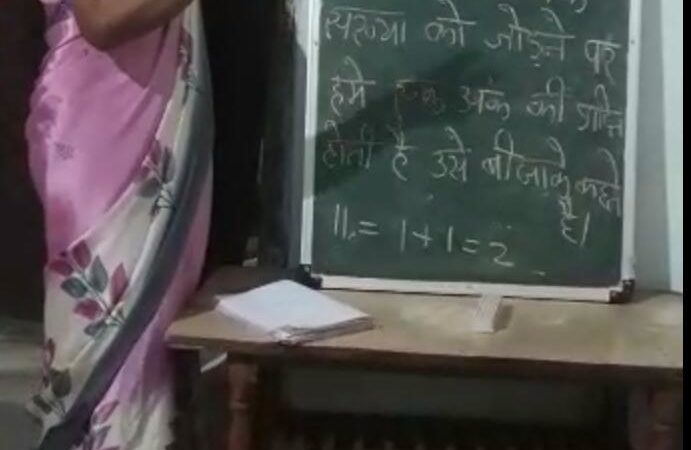 संख्या को जोड़ने पर
हमे एक अंक की प्राप्ति
होती है उसे बीजांक कहते
है।
11,= 1+1=2